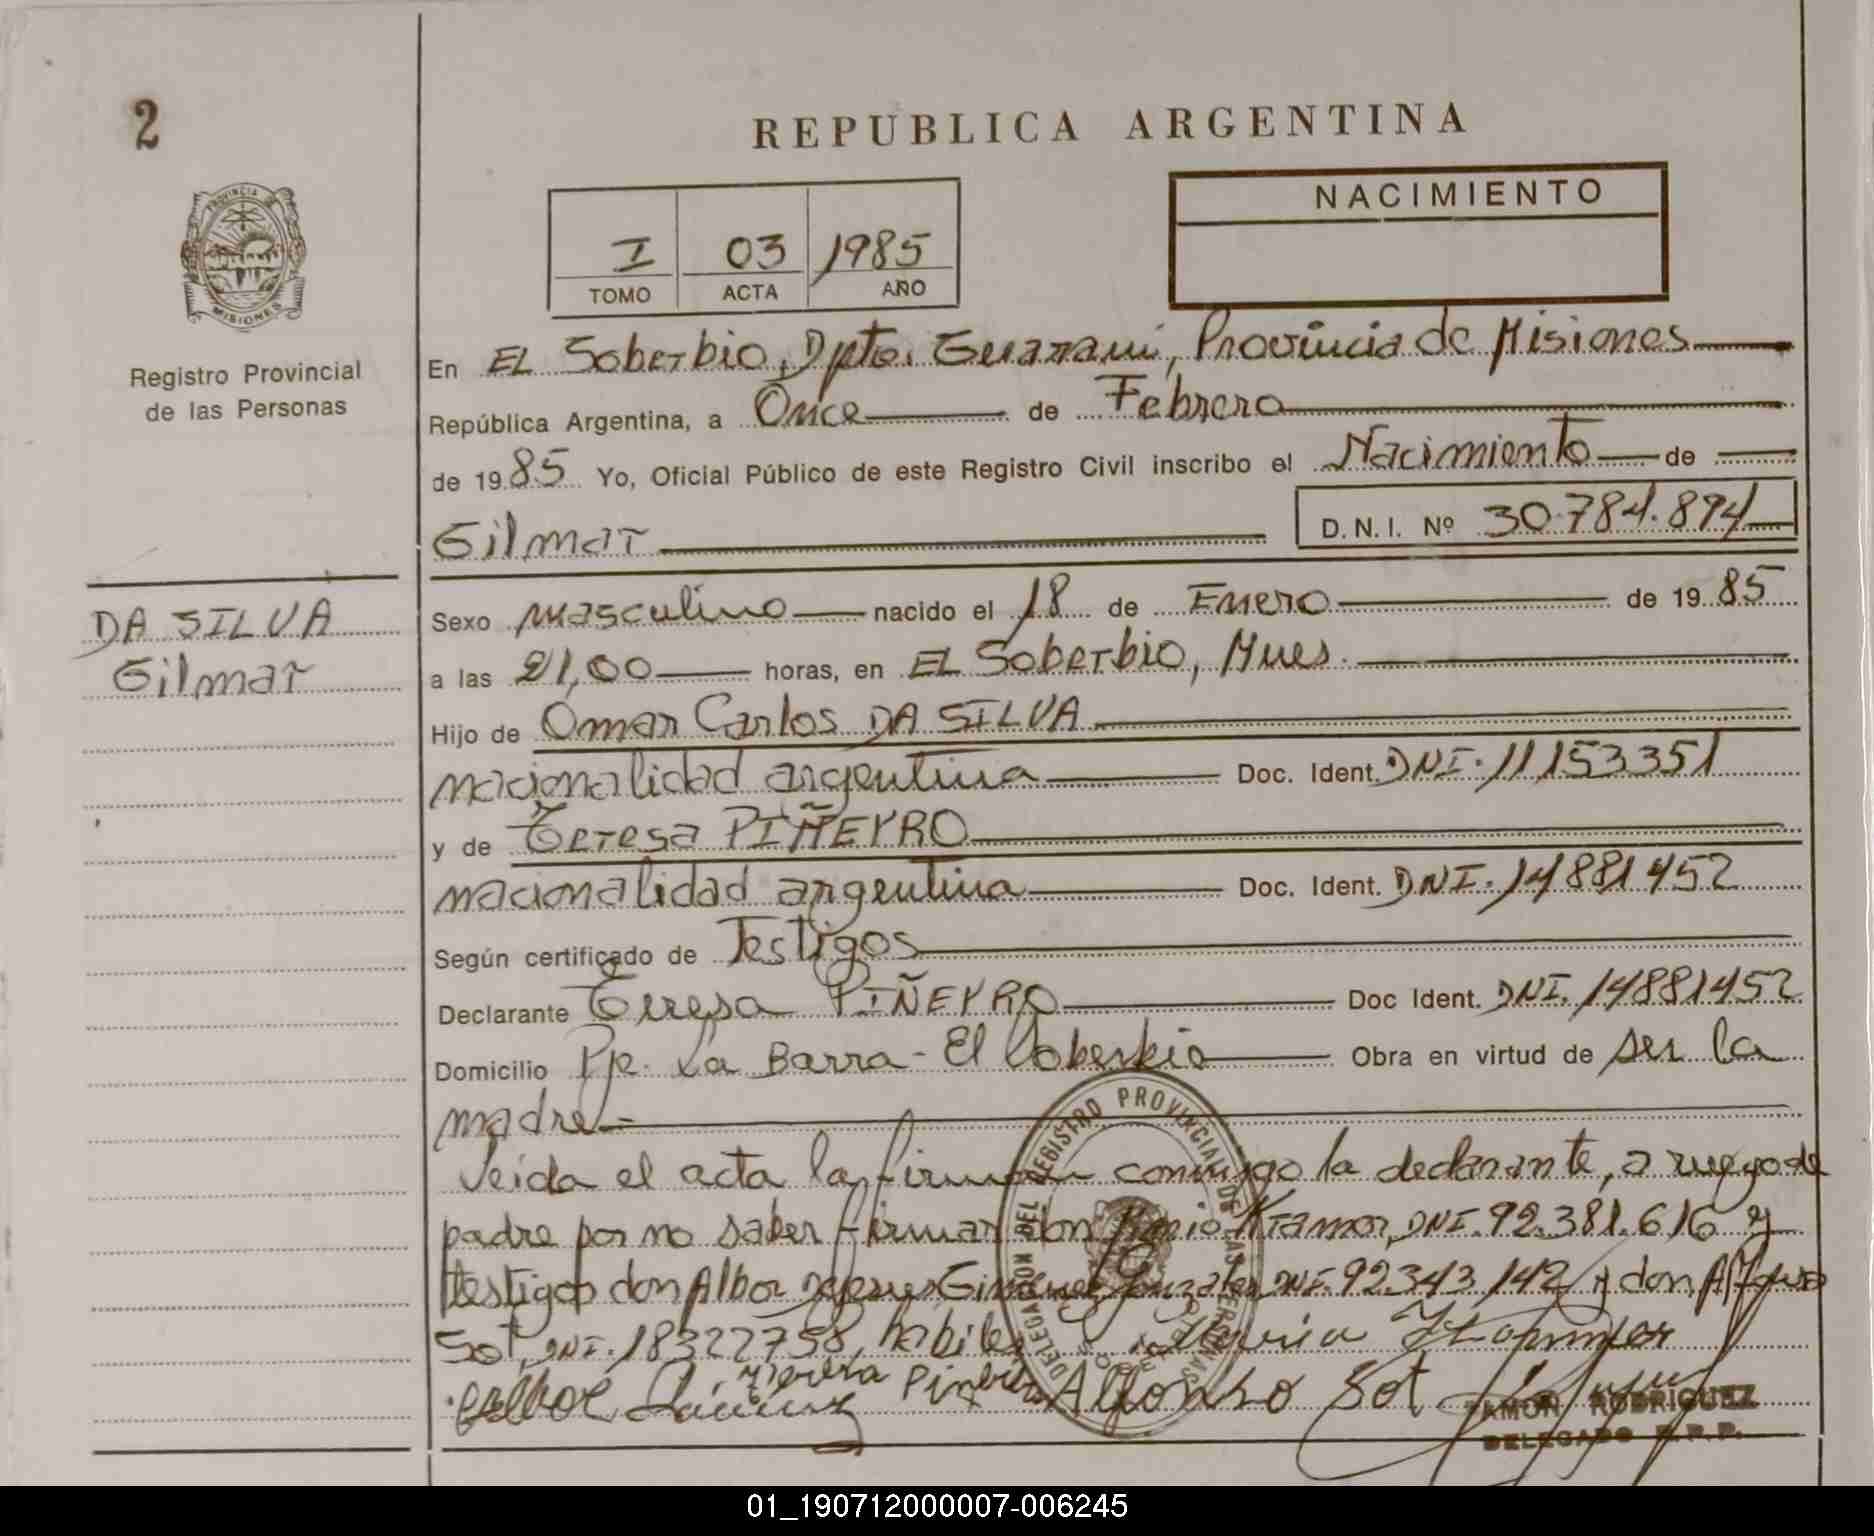 2
REPUBLICA ARGENTINA
NACIMIENTO
I 03 1985
TOMO ACTA AÑO
PROVINCIA
MISIONES
Registro Provincial
de las Personas
En EL Soberbio, Dpto. Guarani, Provincia de Misiones
República Argentina, a Once de Febrero
de 1985 Yo, Oficial Público de este Registro Civil inscribo el Nacimiento de
Gilmar D.N.I. Nº 30.784.894
DA SILVA
Gilmar
Sexo masculino nacido el 18 de Enero de 1985
a las 21,00 horas, en EL Soberbio, Mnes.
Hijo de Omar Carlos DA SILVA
nacionalidad argentina Doc. Ident. DNI. 11153351
y de Teresa PIÑEYRO
nacionalidad argentina Doc. Ident. DNI. 14881452
Según certificado de Testigos
Declarante Teresa PIÑEYRO Doc Ident. DNI. 14881452
Domicilio Pje. La Barra - El Soberbio Obra en virtud de ser la
madre.-
Leida el acta la firman conmigo la declarante, a ruego de
padre por no saber firmar don DNI. 92.381.616 y
testigos don Albor Gimenez Gonzalez DNI. 92.343.142 y don Alfonso
Sot, DNI. 18322758, habiles
Alfonso Sot
DELEGACION DEL REGISTRO PROVINCIAL DE LAS PERSONAS
RAMON RODRIGUEZ
DELEGADO R.P.P.
01_190712000007-006245